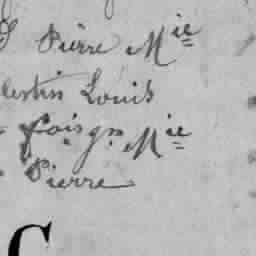 Pierre Mie
lestin Louis
foisqn Mie
Pierre
C